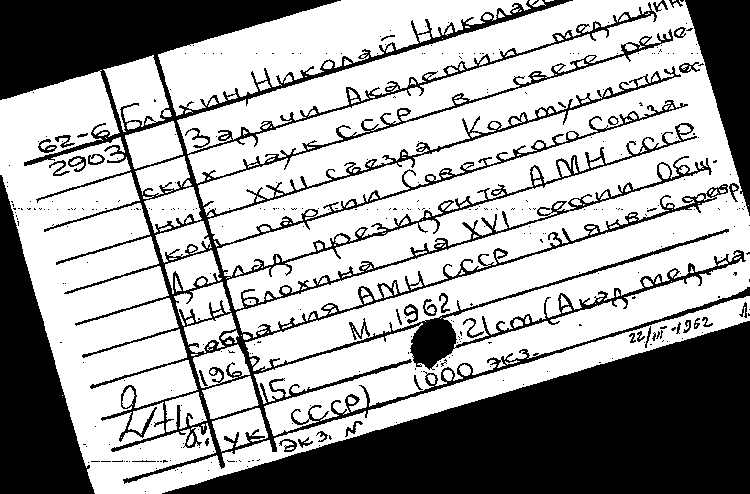 62-6 Блохин, Николай Николаев
2903 Задачи Академии медицин-
ских наук СССР в свете реше-
ний XXII съезда Коммунистичес-
кой партии Советского Союза.
Доклад президента АМН СССР
Н.Н. Блохина на XVI сессии Общ.
собрания АМН СССР 31 янв.-6 февр.
1962 г. М., 1962.
15 с. 21 cm (Акад. мед. на-
ук СССР) 1000 экз.
экз. N
22/III-1962